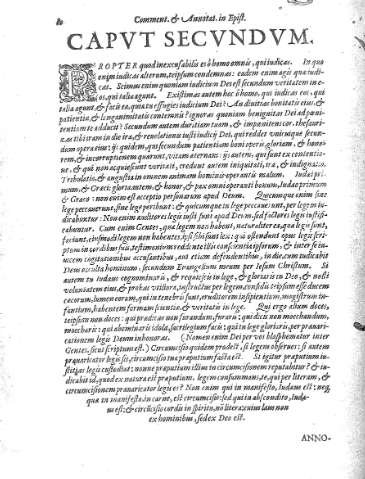 80 Comment. & Annotat. in Epist.
CAPVT SECVNDVM.
PROPTER quod inexcusabilis es ô homo omnis, qui iudicas. In quo
enim iudicas alterum, teipsum condemnas: eadem enim agis quæ iudi-
cas. Scimus enim quoniam iudicium Dei est secundum veritatem in e-
os, qui talia agunt. Existimas autem hoc ô homo, qui iudicas eos, qui
talia agunt, & facis ea, quia tu effugies iudicium Dei? An diuitias bonitatis eius, &
patientiæ, & longanimitatis contemnis? ignoras quoniam benignitas Dei ad pœni-
tentiam te adducit? Secundum autem duritiam tuam, & impœnitens cor, thesauri-
zas tibi iram in die iræ, & reuelationis iusti iudicij Dei, qui reddet vnicuique secun-
dum opera eius: ijs quidem, qui secundum patientiam boni operis gloriam, & hono-
rem, & incorruptionem quærunt, vitam æternam: ijs autem, qui sunt ex contentio-
ne, & qui non acquiescunt veritati, credunt autem iniquitati, ira, & indignatio.
Tribulatio, & angustia in omnem animam hominis operantis malum, Iudæi pri-
mum, & Græci: gloria autem, & honor, & pax omni operanti bonum, Iudæo primum
& Græco: non enim est acceptio personarum apud Deum. Quicunque enim sine
lege peccauerunt, sine lege peribunt: & quicunque in lege peccauerunt, per legem iu-
dicabuntur. Non enim auditores legis iusti sunt apud Deum, sed factores legis iustifi-
cabuntur. Cum enim Gentes, quæ legem non habent, naturaliter ea, quæ legis sunt,
faciunt, eiusmodi legem non habentes, ipsi sibi sunt lex: qui ostendunt opus legis scri-
ptum in cordibus suis, testimonium reddente illis conscientia ipsorum, & inter se in-
uicem cogitationibus accusantibus, aut etiam defendentibus, in die, cum iudicabit
Deus occulta hominum, secundum Euangelium meum per Iesum Christum. Si
autem tu Iudæus cognominaris, & requiescis in lege, & gloriaris in Deo, & nosti
voluntatem eius, & probas vtiliora, instructus per legem, confidis teipsum esse ducem
cæcorum, lumen eorum, qui in tenebris sunt, eruditorem insipientium, magistrum in-
fantium, habentem formam scientiæ, & veritatis in lege. Qui ergo alium doces,
teipsum non doces: qui prædicas non furandum, furaris: qui dicis non mœchandum,
mœcharis: qui abominaris idola, sacrilegium facis: qui in lege gloriaris, per præuari-
cationem legis Deum inhonoras. (Nomen enim Dei per vos blasphematur inter
Gentes, sicut scriptum est.) Circumcisio quidem prodest, si legem obserues: si autem
præuaricator legis sis, circumcisio tua præputium facta est. Si igitur præputium iu-
stitias legis custodiat: nonne præputium illius in circumcisionem reputabitur? & iu-
dicabit id, quod ex natura est præputium, legem consummans, te, qui per literam, &
circumcisionem præuaricator legis es? Non enim qui in manifesto, Iudæus est: neq;
quæ in manifesto in carne, est circumcisio: sed qui in abscondito, Iudæ-
us est: & circumcisio cordis in spiritu, nō litera: cuius laus non
ex hominibus, sed ex Deo est.
ANNO-